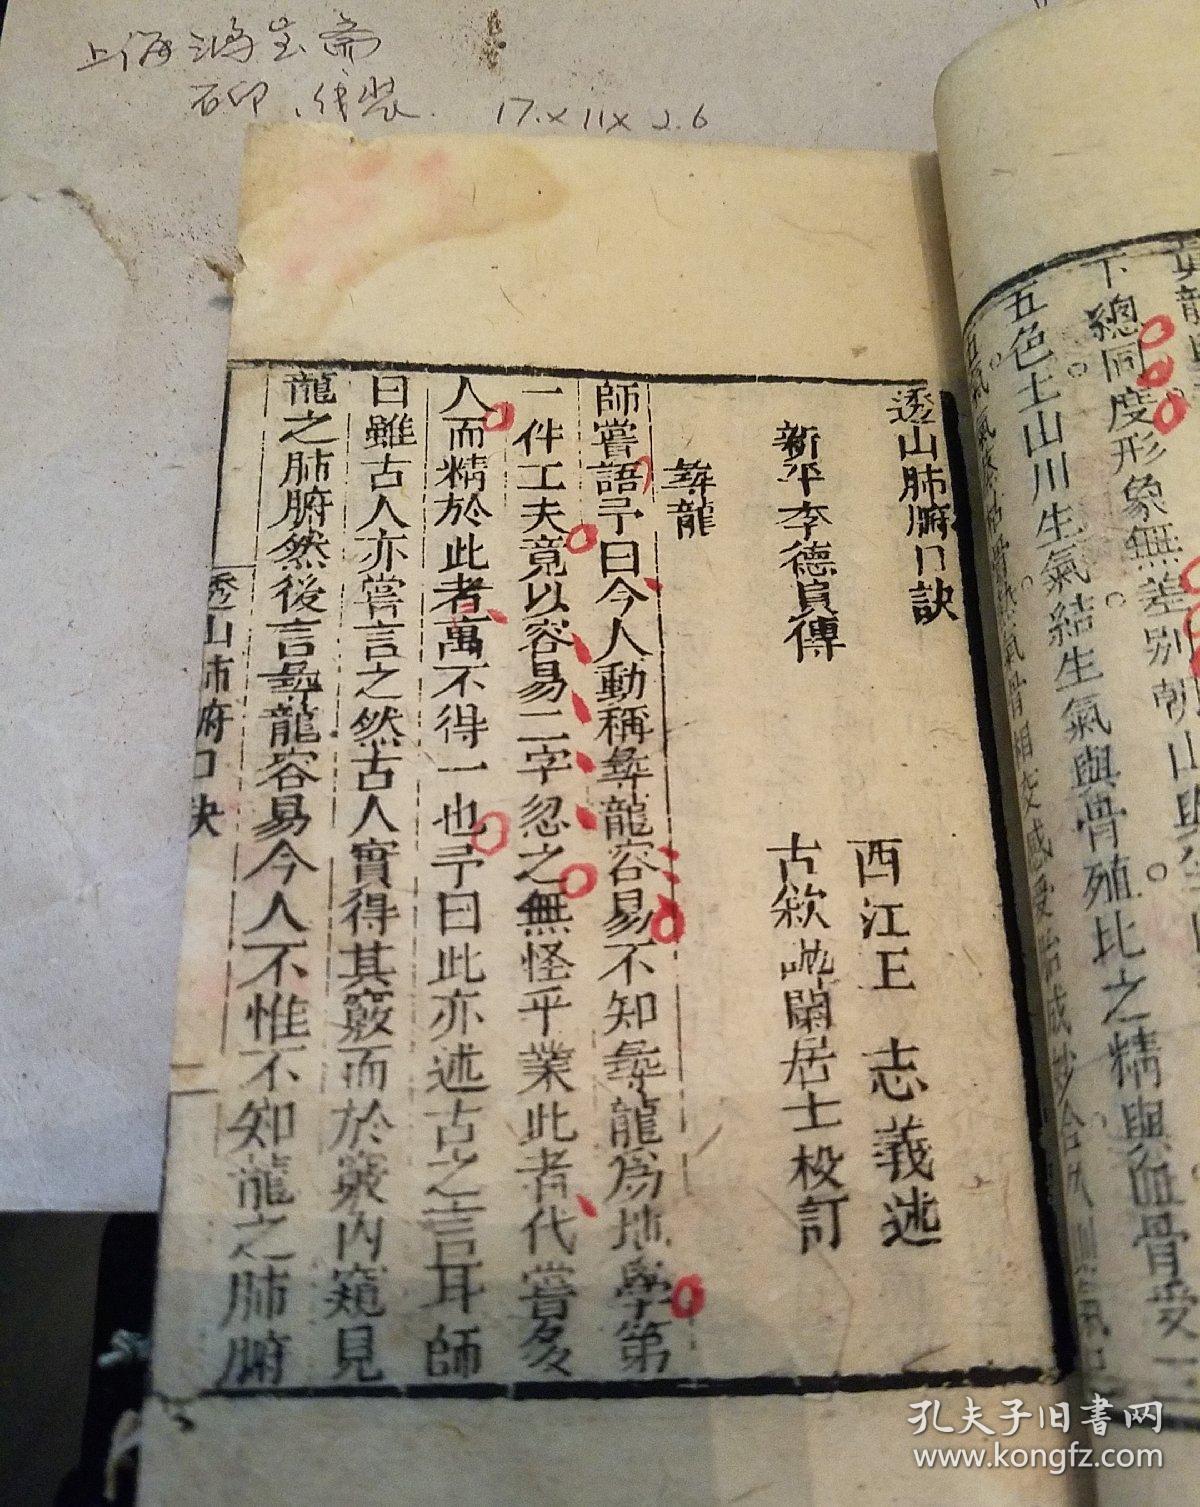 上海鸿宝斋
石印、线装. 17.×11×2.6
透山肺腑口訣
西江王 志義述
新平李德貞傳
古歙 蘭居士校訂
尋龍
師嘗語予曰今人動稱尋龍容易不知尋龍爲地學第
一件工夫竟以容易二字忽之無怪乎業此者代嘗多
人而精於此者萬不得一也予曰此亦述古之言耳師
曰雖古人亦嘗言之然古人實得其竅而於竅內窺見
龍之肺腑然後言尋龍容易今人不惟不知龍之肺腑
透山肺腑口訣
二
下總同度形象無差別朝山與
五色土山川生氣結生氣與骨殖比之精與血骨受
孔夫子旧書网
www.kongfz.com